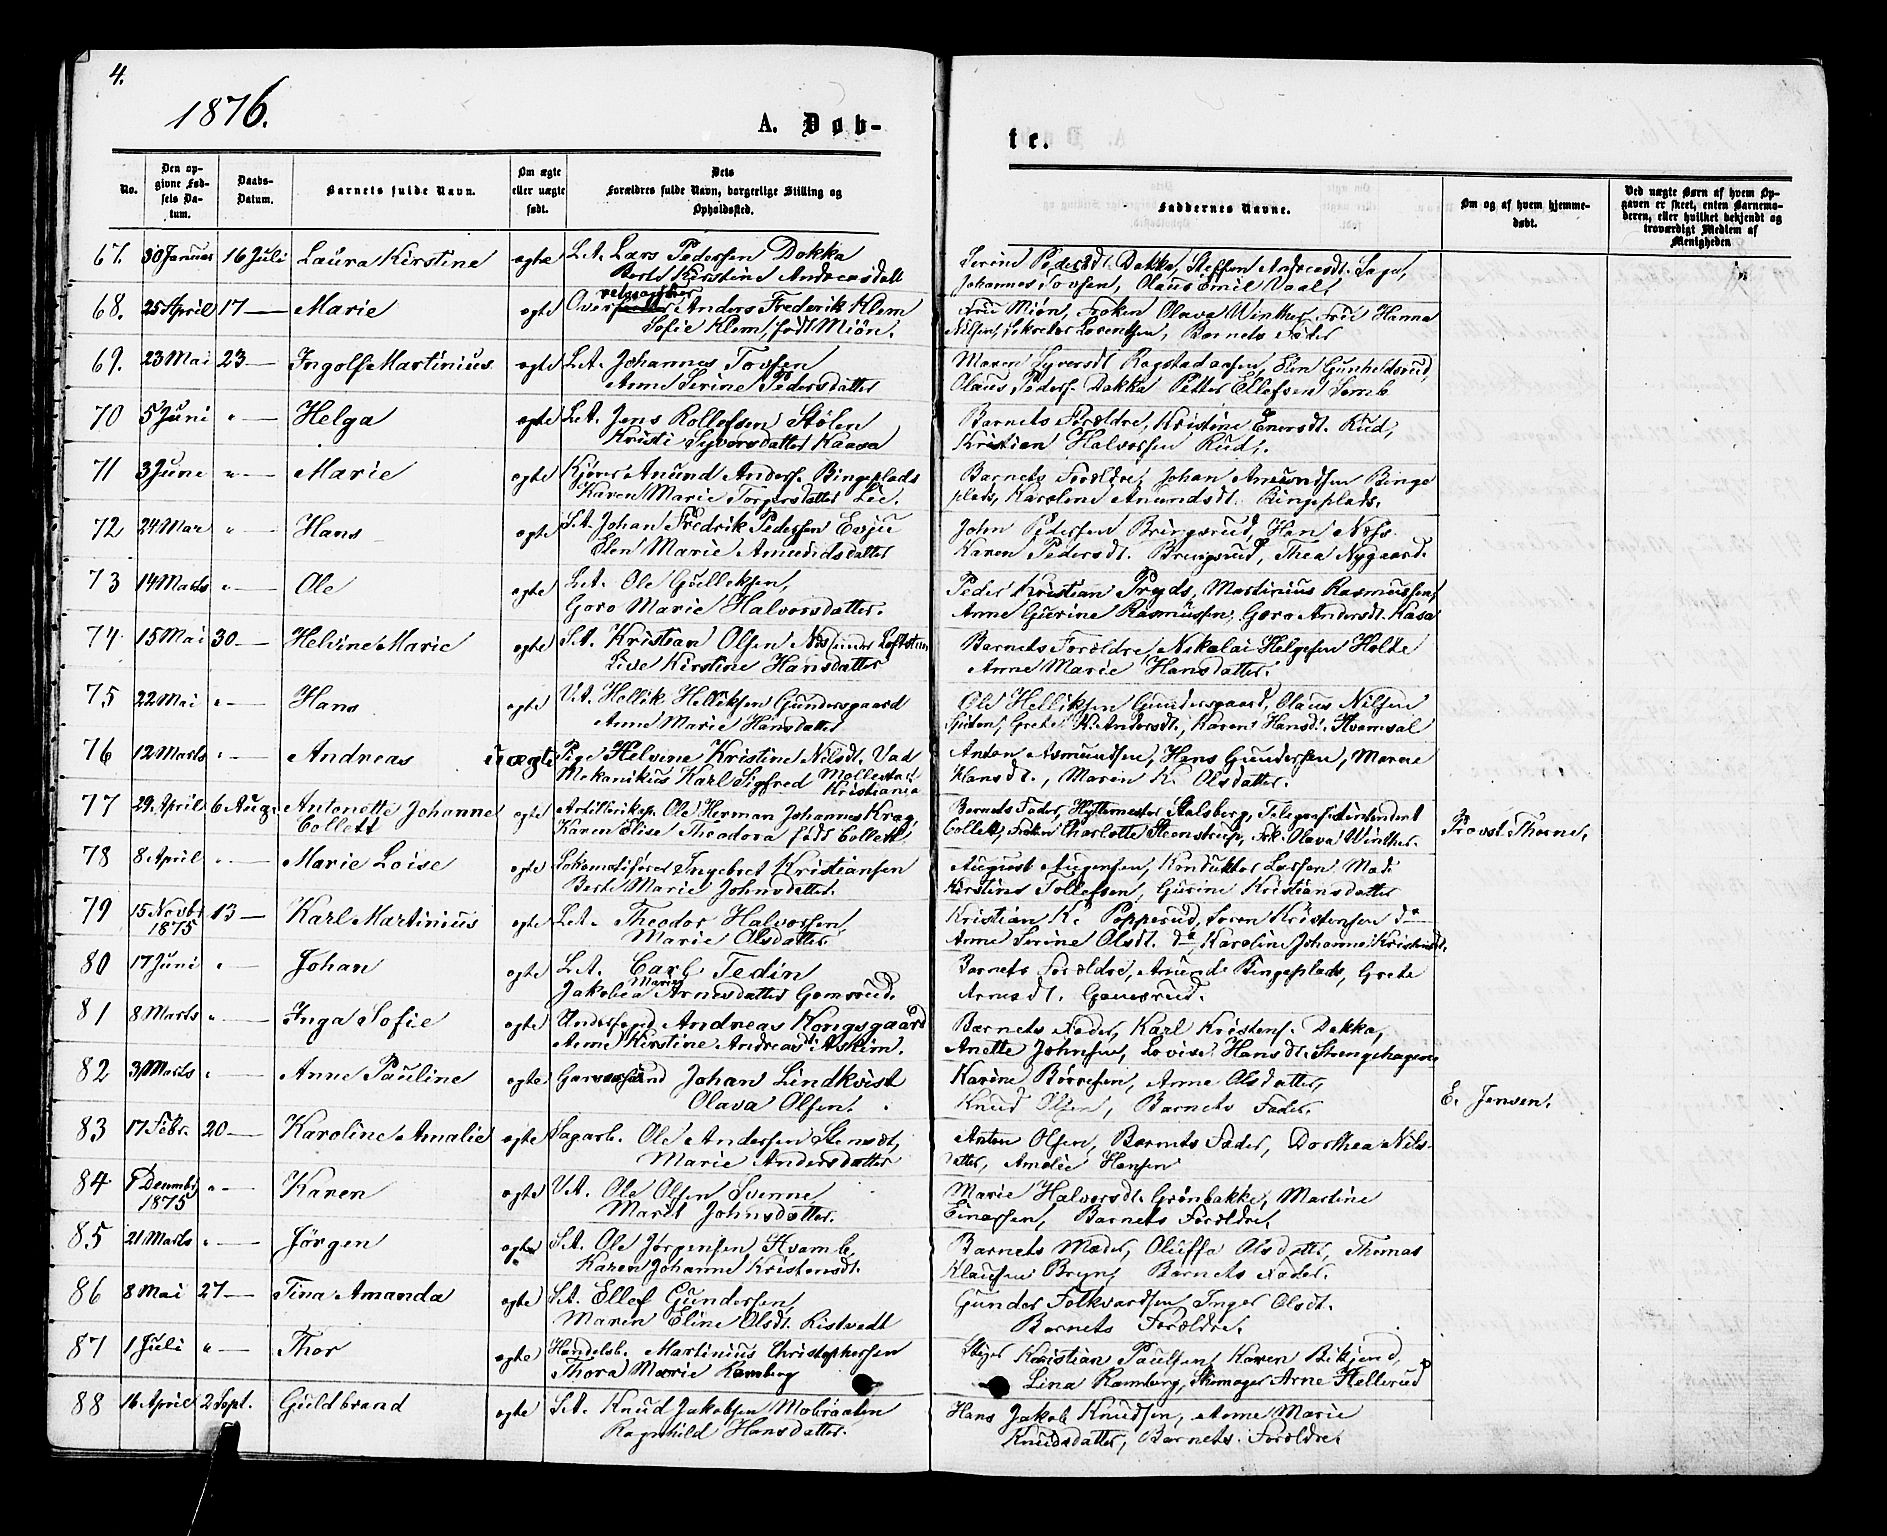 4.
1876.
A. Døb-
te.
No.
Den opgivne Fødsels Datum.
Daabs-Datum.
Barnets fulde Navn.
Om ægte eller uægte født.
Dets Forældres fulde Navn, borgerlige Stilling og Opholdssted.
Faddernes Navne.
Om og af hvem hjemmedøbt.
Ved uægte Børn af hvem Opgaven er skeet, enten Barnemoderen, eller hvilket bekjendt og troværdigt Medlem af Menigheden
67. 30 Januar 16 Juli Laura Kirstine ægte L.A. Lars Pedersen Dokka
Berte Kirstine Andreasdatt
Serine Pedersdt. Dokka, Steffen Andreasdt. Saga,
Johannes Tovsen, Olaus Emil Vaal,
68. 25 April 17 — Marie ægte Anders Frederik Klem
Sofie Klem, født Miøn.
Fru Miøn, Frøken Olava Winther, Frue Hanna
Nilsen, Sekretær Lorentsen, Barnets Fader
69. 23 Mai 23 — Ingolf Martinius ægte L.A. Johannes Tovsen
Anne Serine Pedersdatter
Maren Syversdt. Ragstadaasen, Elen Gunhildsrud,
Olaus Peders. Dokka Petter Ellefsen
70 5 Juni " — Helga ægte L.A. Jens Rollefsen Stølen
Kristi Syversdatter Kaasa
Barnets Forældre, Kristine Enersdt. Rud,
Kristian Halvorsen Rud.
71 3 June " — Marie ægte Anund Anders. Bingeplads
Karen Marie Torgersdatter Lie.
Barnets Forældre, Johan Amundsen Binge
plads, Karoline Anundsdt. Bingeplads.
72 24 Mar " — Hans ægte Johan Fredrik Pedersen
Elen Marie Amundsdatter
John Pedersen Bringsrud, Han
Karen Pedersdt. Bringsrud, Thea Nygaard.
73 14 Marts " — Ole ægte L.A. Ole Gulliksen,
Goro Marie Halvorsdatter.
Peder Kristian Pryds, Martinius Rasmussen,
Anne Gurine Rasmussen, Goro Andersdt. Kasa
74 15 Mai 30 — Helvine Marie ægte S.A. Kristian Olsen
Live Kirstine Hansdatter
Barnets Forældre, Nikolai Helgesen Holte
Anne Marie Hansdatter.
75 22 Mai " — Hans ægte Hellik Helliksen Gundersgaard
Anne Marie Hansdatter
Ole Helliksen Gundersgaard, Olaus Nilsen
Grete Andersdt, Karen Hansdt. Kvamsal
76 12 Marts " — Andreas uægte Pige Helvine Kristine Nilsdt. Vad
Mekanikus Karl Sigfred Kristiania
Anton Asmundsen, Hans Gundersen, Maren
Hansdt., Maren K. Olsdatter.
77 29. April 6 Aug. Antonette Johanne
Collett ægte Ole Herman Johannes Krag,
Karen Elise Theodora født Collett
Barnets Fader, Hyttemester Stalsberg, Telegrafintendent
Collett, Frøken Charlotte Steenstrup, Frk. Olava Winther.
Provst Thorne.
78 8 April " — Marie Loise ægte Lokomotifører Ingebret Kristiansen
Berte Marie Johnsdatter.
August Augensen, Konduktør Larsen Mad.
Kirstine Tollefsen, Gurine Kristiansdatter
79 15 Novbr
1875 13 — Karl Martinius ægte L.A. Theodor Halvorsen,
Marie Olsdatter
Kristian K. Popperud, Soren Kristensen do
Anne Serine Olsdt. do, Karoline Johanne Kristensdt.
80 17 Juni " — Johan ægte L.A. Carl Tedin
Jakobea Marie Arnesdatter Gomsrud.
Barnets Forældre, Anund Bingeplads, Grete
Arnesdt. Gomsrud.
81 8 Marts " — Inga Sofie ægte Andreas Kongsgaard
Anne Kirstine Andreasdt. Askim.
Barnets Fader, Karl Kristens. Dokka,
Anette Johnsen, Lovise Hansdt. Strengehagen
82 31 Marts " — Anne Pauline ægte Garversvend Johan Lindkvist
Olava Olsen.
Karine Børresen, Anne Olsdatter,
Knud Olsen, Barnets Fader.
E. Jensen.
83 17 Febr. 20 — Karoline Amalie ægte Sagarb. Ole Andersen Stensdt,
Marie Andersdatter
Anton Olsen, Barnets Fader, Dorthea Nils-
datter, Amalie Hansen
84 Decembr
1875 " — Karen ægte Ole Olsen Svenne,
Marit Johnsdatter.
Marie Halvorsdt. Grønbakke, Martine
Einarsen, Barnets Forældre,
85 21 Marts " — Jørgen ægte S.A. Ole Jørgensen Kvamb,
Karen Johanne Kristensdt.
Barnets Moder, Oluffa Olsdatter, Thomas
Klausen Bryn, Barnets Fader.
86 8 Mai 27 — Tina Amanda ægte S.A. Ellef Gundersen,
Maren Eline Olsdt. Ristvedt
Gunder Folkvardsen, Inger Olsdt.
Barnets Forældre.
87 1 Juli " — Thor ægte Handelsb. Martinius Christophersen
Thora Marie Ramberg
Stiger Kristian Paulsen, Karen Bikjend,
Lina Ramberg, Skomager Arne Hellerud
88 16 April 2 Sept. Guldbrand ægte S.A. Knud Jakobsen Mobraaten
Ragnhild Hansdatter.
Hans Jakob Knudsen, Anne Marie
Knudsdatter, Barnets Forældre.